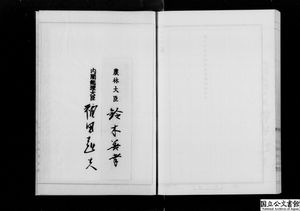 農林大臣
鈴木善幸
内閣総理大臣
福田赳夫
国立公文書館
National Archives of Japan